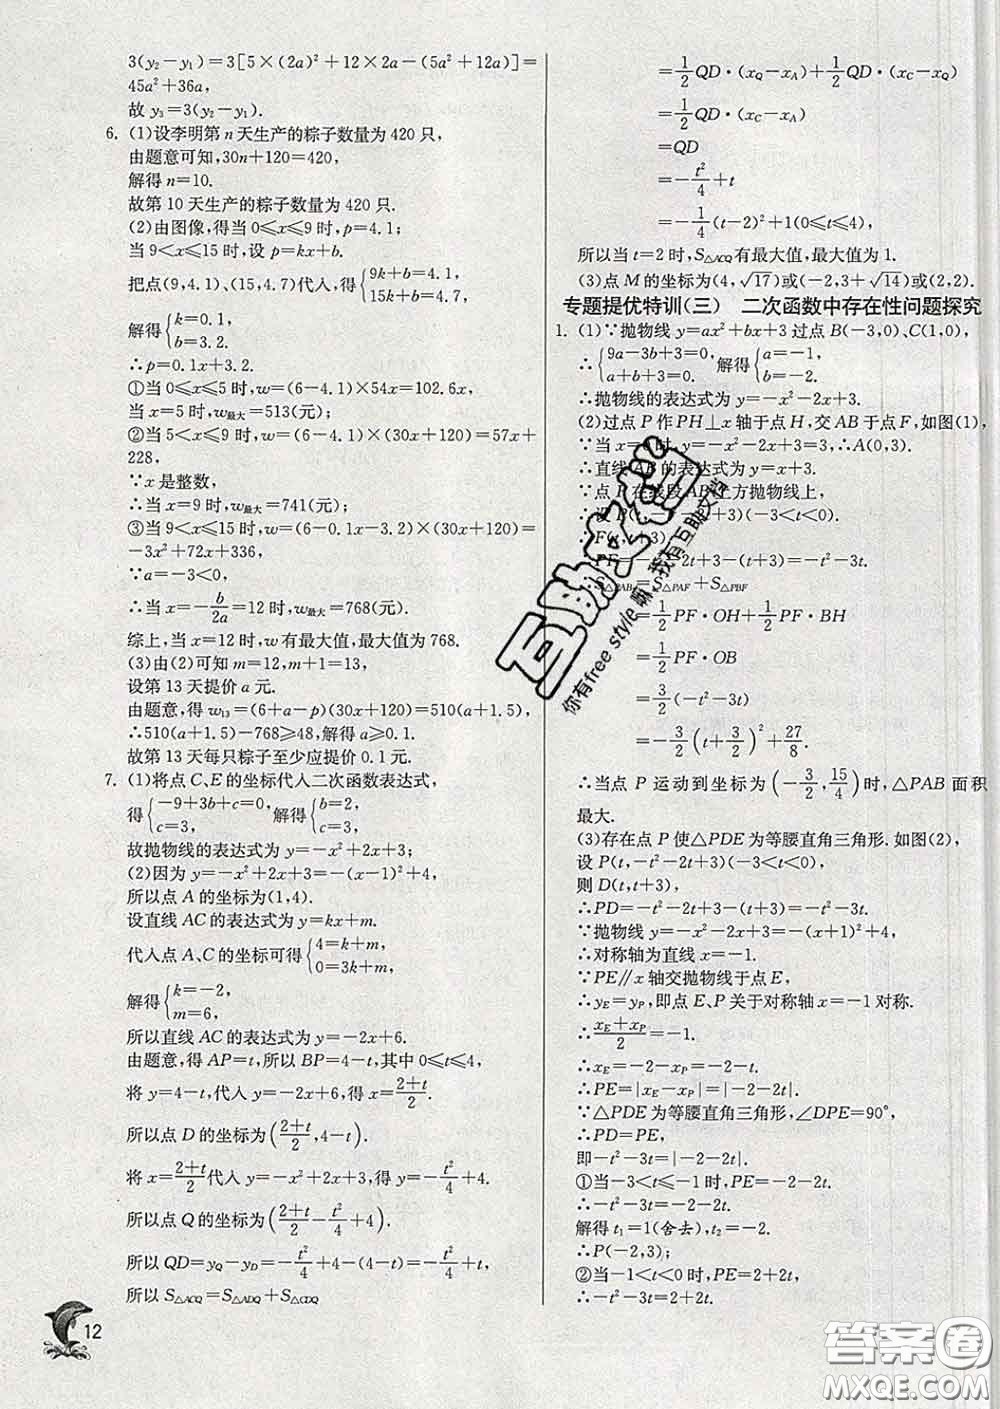 3(y₂−y₁)=3[5×(2a)²+12×2a−(5a²+12a)]=
45a²+36a,
故 y₃=3(y₂−y₁).
6. (1)设李明第 n 天生产的粽子数量为 420 只,
由题意可知,30n+120=420,
解得 n=10.
故第 10 天生产的粽子数量为 420 只.
(2)由图像,得当 0≤x≤9 时,p=4.1;
当 9<x≤15 时,设 p=kx+b.
把点(9,4.1)、(15,4.7)代入,得{9k+b=4.1, 15k+b=4.7.
解得{k=0.1, b=3.2.
∴p=0.1x+3.2.
①当 0≤x≤5 时,w=(6−4.1)×54x=102.6x,
当 x=5 时,w最大=513(元);
②当 5<x≤9 时,w=(6−4.1)×(30x+120)=57x+
228,
∵x 是整数,
∴当 x=9 时,w最大=741(元);
③当 9<x≤15 时,w=(6−0.1x−3.2)×(30x+120)=
−3x²+72x+336,
∵a=−3<0,
∴当 x=−b/2a=12 时,w最大=768(元).
综上,当 x=12 时,w 有最大值,最大值为 768.
(3)由(2)可知 m=12,m+1=13,
设第 13 天提价 a 元.
由题意,得 w₁₃=(6+a−p)(30x+120)=510(a+1.5),
∴510(a+1.5)−768≥48,解得 a≥0.1.
故第 13 天每只粽子至少应提价 0.1 元.
7. (1)将点 C、E 的坐标代入二次函数表达式,
得{−9+3b+c=0, c=3, 解得{b=2, c=3,
故抛物线的表达式为 y=−x²+2x+3;
(2)因为 y=−x²+2x+3=−(x−1)²+4,
所以点 A 的坐标为(1,4).
设直线 AC 的表达式为 y=kx+m.
代入点 A、C 的坐标可得{4=k+m, 0=3k+m,
解得{k=−2, m=6,
所以直线 AC 的表达式为 y=−2x+6.
由题意,得 AP=t,所以 BP=4−t,其中 0≤t≤4,
将 y=4−t,代入 y=−2x+6,得 x=(2+t)/2.
所以点 D 的坐标为((2+t)/2,4−t).
将 x=(2+t)/2代入 y=−x²+2x+3,得 y=4−t²/4.
所以点 Q 的坐标为((2+t)/2−t²/4+4).
所以 QD=y_Q−y_D=−t²/4+4−(4−t)=−t²/4+t,
所以 S△ACQ=S△ADQ+S△CDQ
12
=1/2QD·(x_Q−x_A)+1/2QD·(x_C−x_Q)
=1/2QD·(x_C−x_A)
=QD
=−t²/4+t
=−1/4(t−2)²+1(0≤t≤4),
所以当 t=2 时,S△ACQ有最大值,最大值为 1.
(3)点 M 的坐标为(4,√17)或(−2,3+√14)或(2,2).
专题提优特训(三) 二次函数中存在性问题探究
1. (1)∵抛物线 y=ax²+bx+3 过点 B(−3,0)、C(1,0),
∴{9a−3b+3=0, a+b+3=0, 解得{a=−1, b=−2.
∴抛物线的表达式为 y=−x²−2x+3.
(2)过点 P 作 PH⊥x 轴于点 H,交 AB 于点 F,如图(1),
∵当 x=0时,y=−x²−2x+3=3,∴A(0,3).
∴直线 AB 的表达式为 y=x+3.
∵点 P 在线段 AB 上方抛物线上,
∴设 P(t,−t²−2t+3)(−3<t<0).
∴F(t,t+3).
∴PF=−t²−2t+3−(t+3)=−t²−3t.
∴S△PAB=S△PAF+S△PBF
=1/2PF·OH+1/2PF·BH
=1/2PF·OB
=3/2(−t²−3t)
=−3/2(t+3/2)²+27/8.
∴当点 P 运动到坐标为(−3/2,15/4)时,△PAB 面积
最大.
(3)存在点 P 使△PDE 为等腰直角三角形.如图(2),
设 P(t,−t²−2t+3)(−3<t<0),
则 D(t,t+3),
∴PD=−t²−2t+3−(t+3)=−t²−3t.
∵抛物线 y=−x²−2x+3=−(x+1)²+4,
∴对称轴为直线 x=−1.
∵PE∥x 轴交抛物线于点 E,
∴y_E=y_P,即点 E、P 关于对称轴 x=−1 对称.
∴(x_E+x_P)/2=−1.
∴x_E=−2−x_P=−2−t.
∴PE=|x_E−x_P|=|−2−2t|.
∵△PDE 为等腰直角三角形,∠DPE=90°,
∴PD=PE,
即−t²−3t=|−2−2t|.
①当−3<t≤−1 时,PE=−2−2t.
∴−t²−3t=−2−2t.
解得 t₁=1(舍去),t₂=−2.
∴P(−2,3);
②当−1<t<0 时,PE=2+2t.
∴−t²−3t=2+2t.
互助文档
你有free style嘛,我有互助文档
答案圈
MXQE.COM